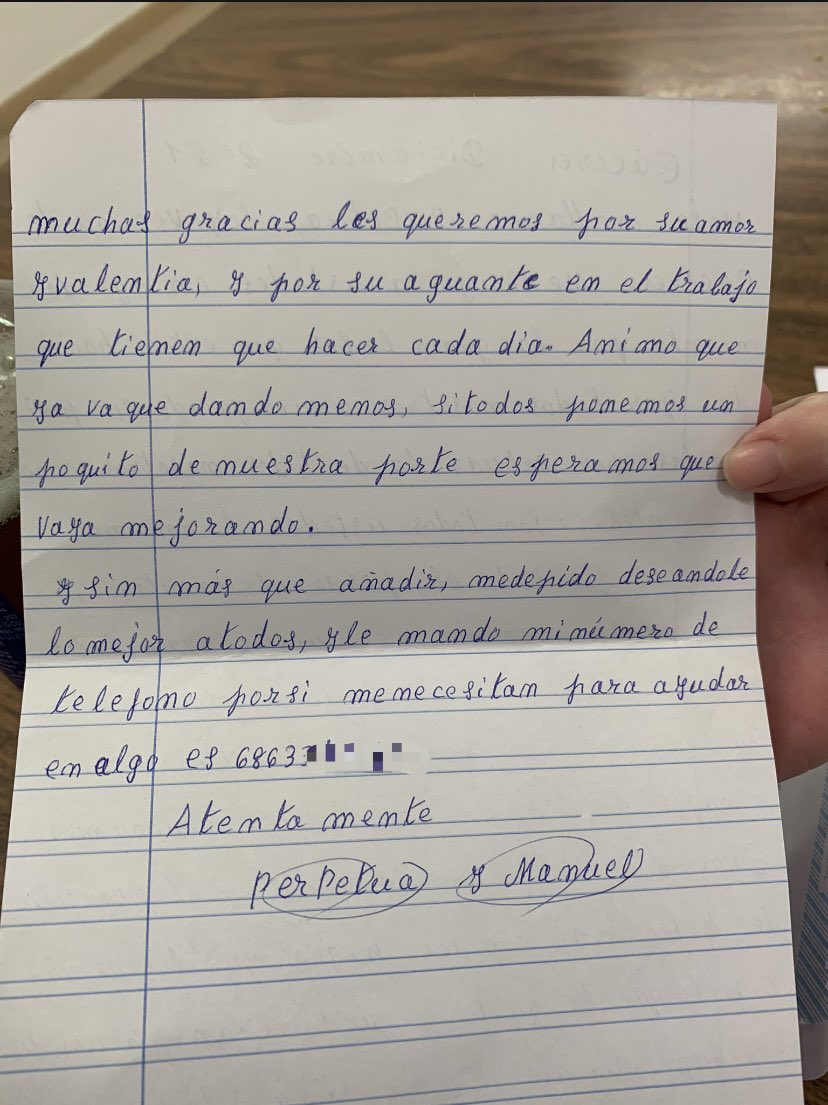 muchas gracias les queremos por su amor
y valentia, y por su aguante en el trabajo
que tienen que hacer cada dia. Animo que
ya va que dando menos, si todos ponemos un
poquito de nuestra porte esperamos que
vaya mejorando.
y sin más que añadir, me depido deseandole
lo mejor a todos, y le mando mi número de
telefono por si me necesitan para ayudar
en algo es 68633
Atenta mente
Perpetua y Manuel